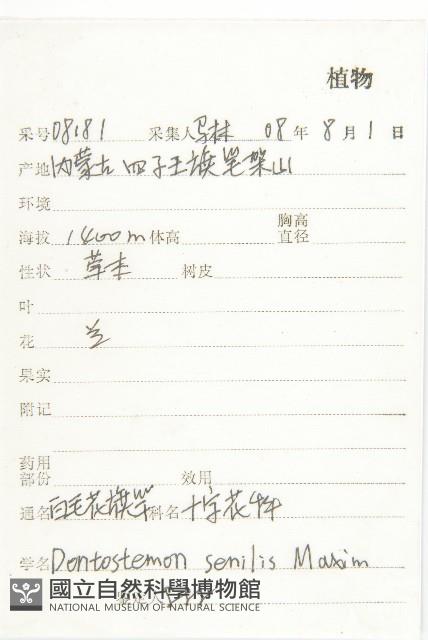 植物
采号 08181 采集人 马林 08 年 8 月 1 日
产地 内蒙古 四子王旗笔架山
环境
胸高
海拔 1400 m 体高 直径
性状 草本 树皮
叶
花 兰
果实
附记
药用
部份 效用
通名 白毛花旗竿 科名 十字花科
学名 Dontostemon senilis Maxim
國立自然科學博物館
NATIONAL MUSEUM OF NATURAL SCIENCE